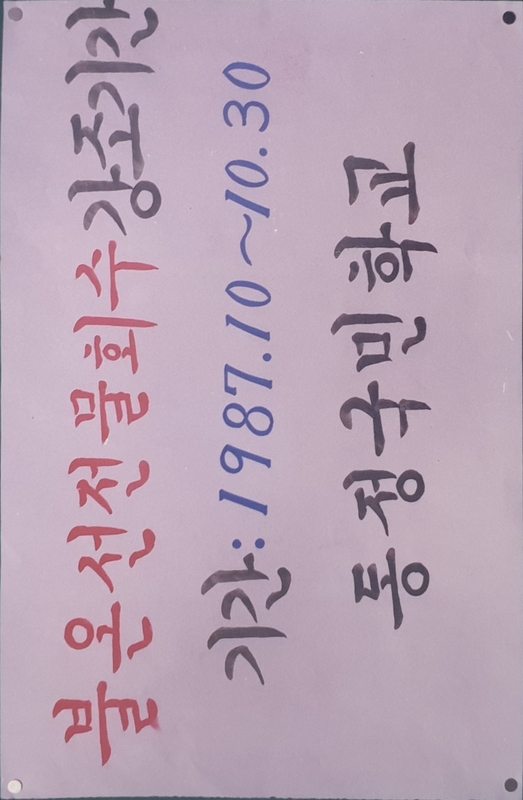 불온선전물회수강조기간
기간: 1987.10~10.30
동정국민학교